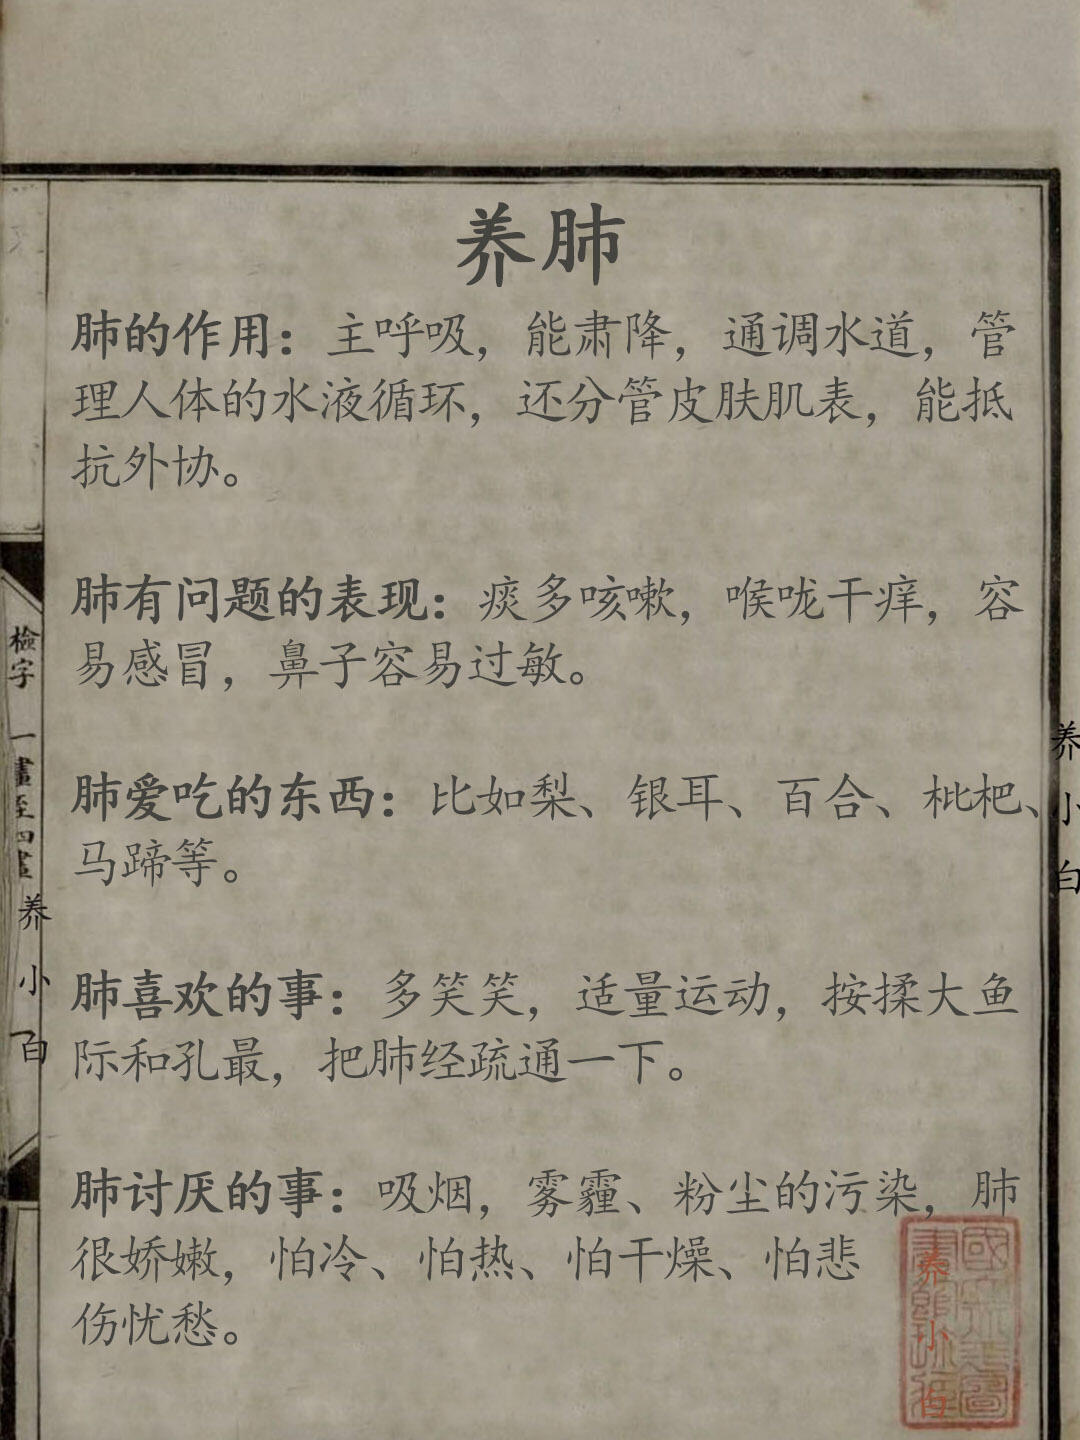 养肺
肺的作用：主呼吸，能肃降，通调水道，管
理人体的水液循环，还分管皮肤肌表，能抵
抗外协。
肺有问题的表现：痰多咳嗽，喉咙干痒，容
易感冒，鼻子容易过敏。
肺爱吃的东西：比如梨、银耳、百合、枇杷、
马蹄等。
肺喜欢的事：多笑笑，适量运动，按揉大鱼
际和孔最，把肺经疏通一下。
肺讨厌的事：吸烟，雾霾、粉尘的污染，肺
很娇嫩，怕冷、怕热、怕干燥、怕悲
伤忧愁。
檢字
一畫至四畫
养小白
养小白
养小白